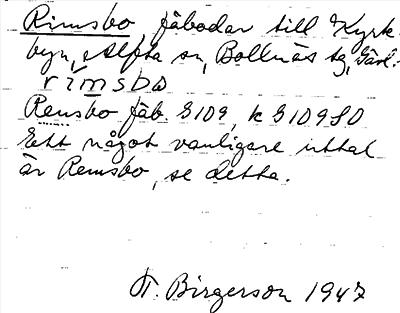 Rimsbo fäbodar till Kyrk-
byn, Alfta sn, Bollnäs tg, Gävl.
rimsbo
Remsbo fäb. G109, k G109 SO
Ett något vanligare uttal
är Remsbo, se detta.
T. Birgerson 1947